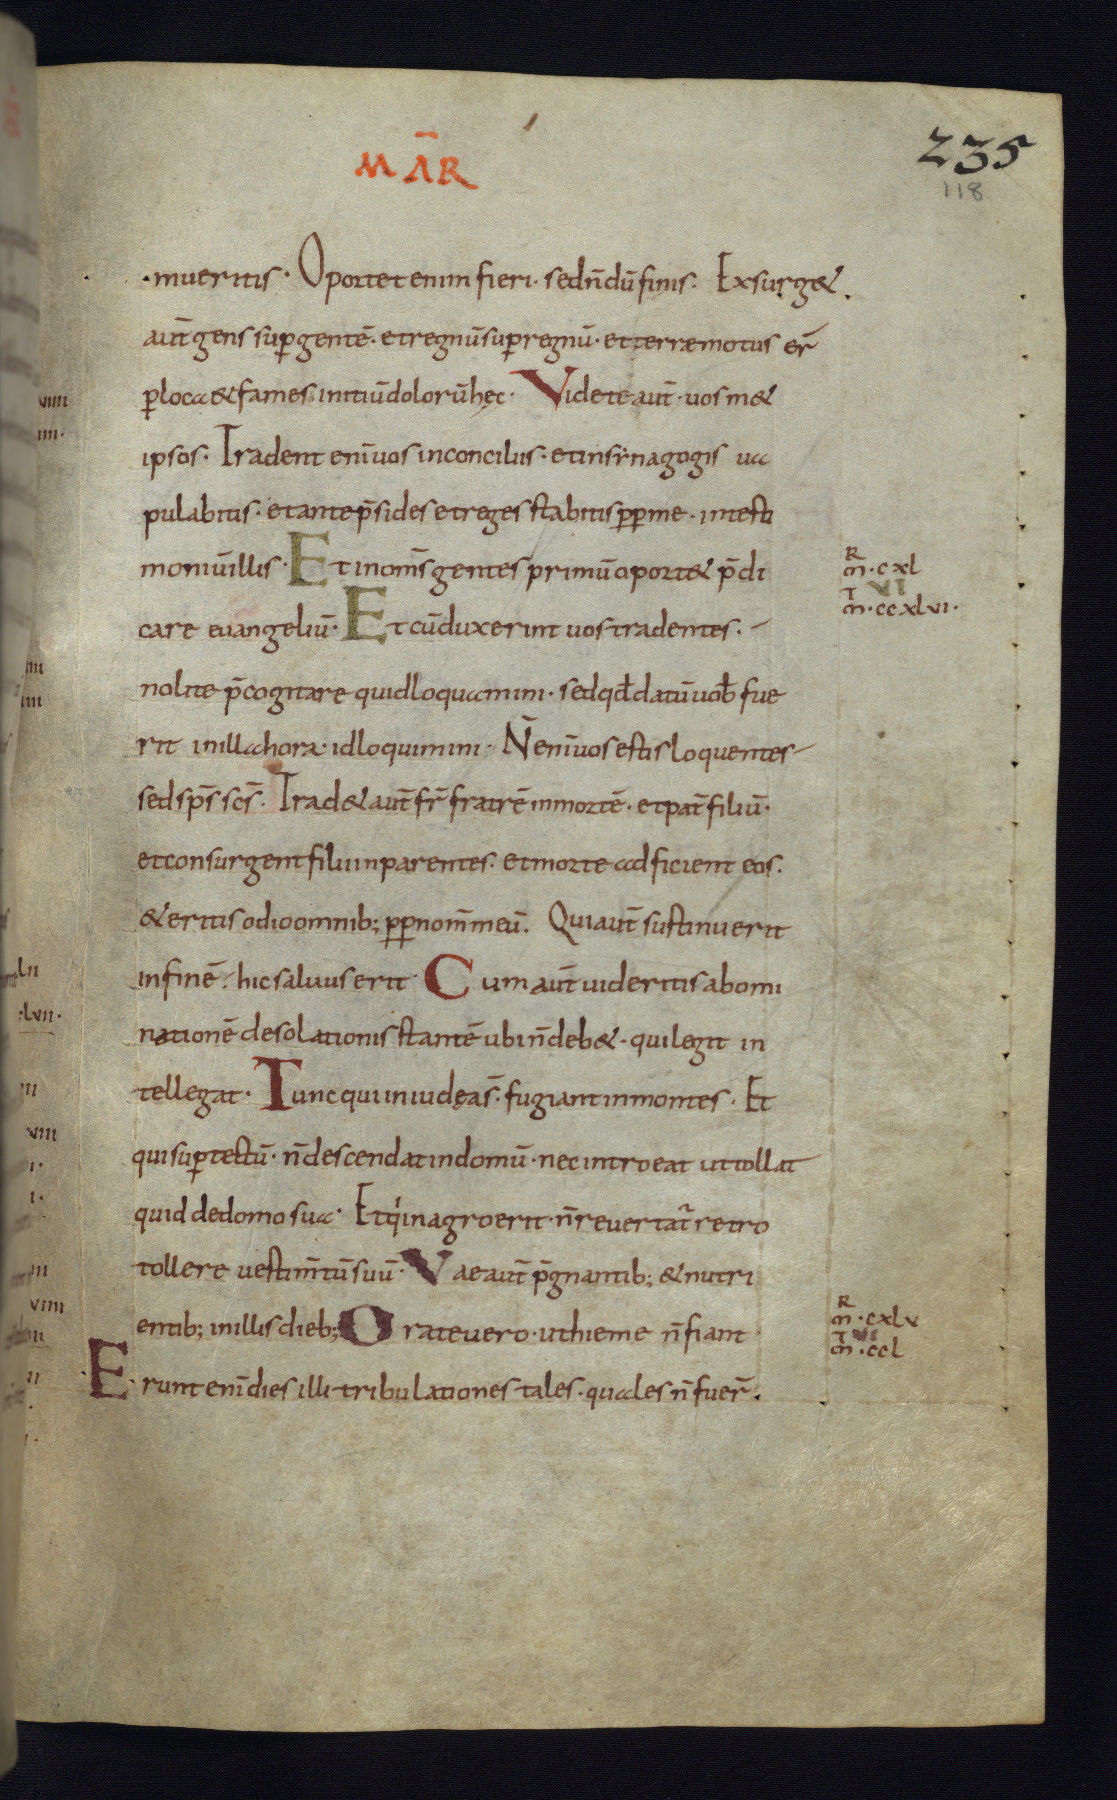 MAR̄
235
118
·mueritis· Oportet enim fieri· sed n̄dū finis· Exsurg&
aut̄ gens sup̱ gentē· et regnū sup̱ regnū· et terrae motus er̄
p̱ loca & fames· initiū dolorū hęc· Videte aut̄· uos m&
ipsos· Tradent enī uos inconciliis· et insynagogis ua
pulabitis· et ante p̄sides et reges stabitis p̱p̱ me· intesti
moniū illis· Et in om̄s gentes primū oport& p̄di
care euangeliū· Et cū duxerint uos tradentes·
nolite p̄cogitare quid loquamini· sed qd̄ datū uob̄ fue
rit inilla hora· id loquimini· N̄ enī uos estis loquentes
sed sp̄s sc̄s· Trad& aut̄ fr̄ fratrē in mortē· et pat̄ filiū·
et consurgent filii in parentes· et morte adficient eos·
& eritis odio omnib; p̱p̱ nom̄ meū· Qui aut̄ sustinuerit
in finē· hic saluus erit· Cum aut̄ uideritis abomi
nationē desolationis stantē ubi n̄ deb&· qui legit in
tellegat· Tunc qui in iudęa s̄· fugiant in montes· Et
qui sup̱ tectū· n̄ descendat in domū· nec introeat ut tollat
quid de domo sua· Et qi in agro erit· n̄ reuertat̄ retro
tollere uestim̄tū suū· Vae aut̄ p̄gnantib; & nutri
entib; in illis dieb; Orate uero· ut hieme n̄ fiant
Erunt enī dies illi tribulationes tales· quales n̄ fuer̄·
R
m̄·cxl
VI
T
m̄·ccxlvi·
R
m̄·cxlv
T VI
m̄·ccl